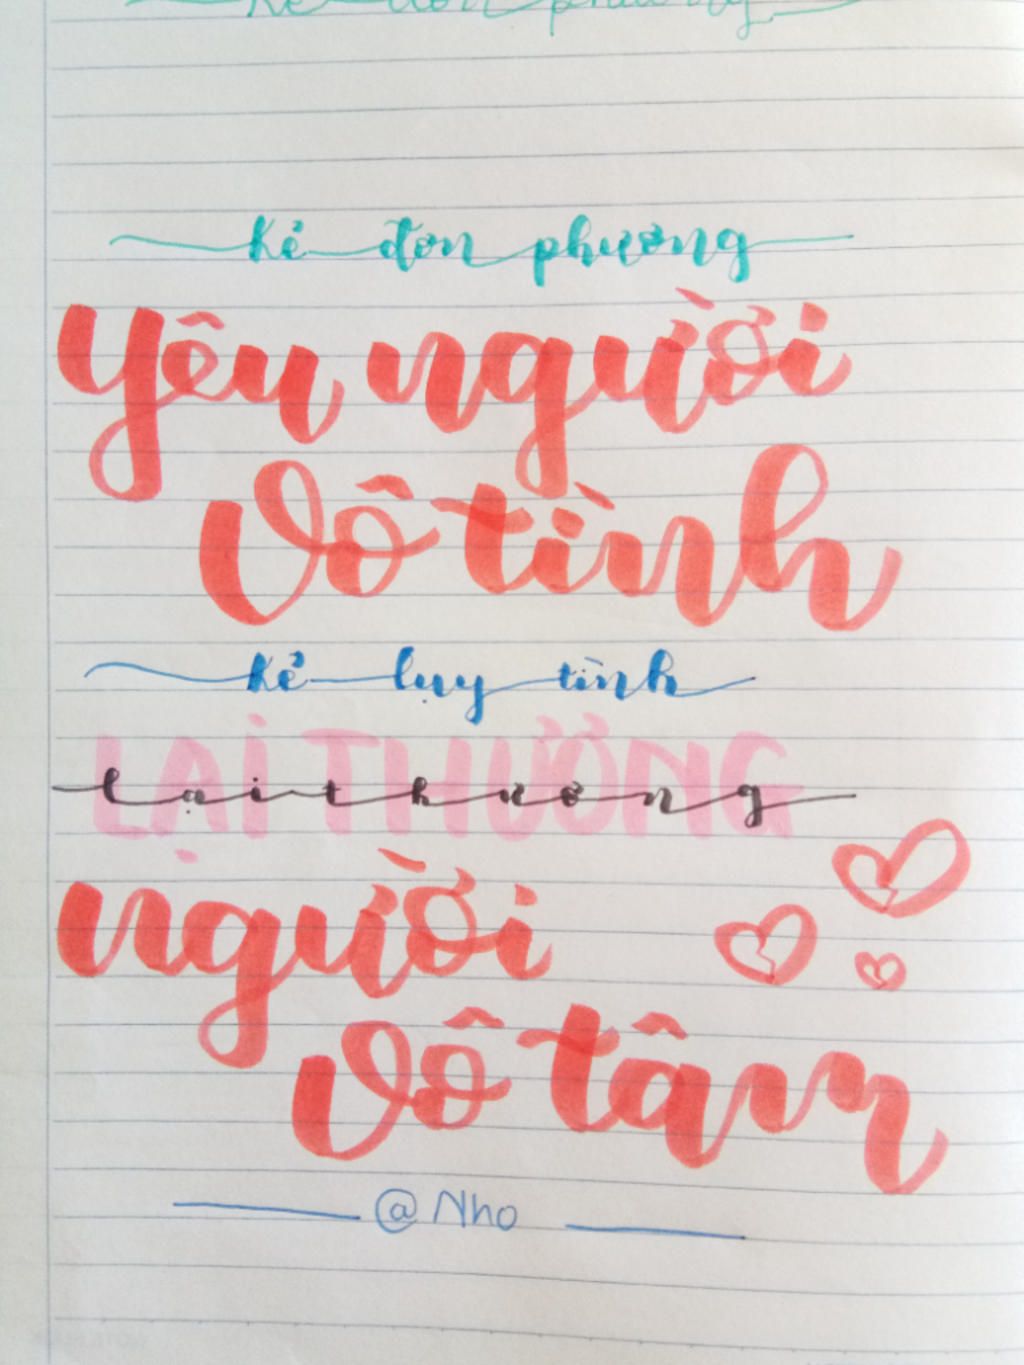 Kẻ đơn phương
Kẻ đơn phương
yêu người
vô tình
Kẻ lụy tình
LẠI THƯƠNG
lại thương
người
vô tâm
@Nho